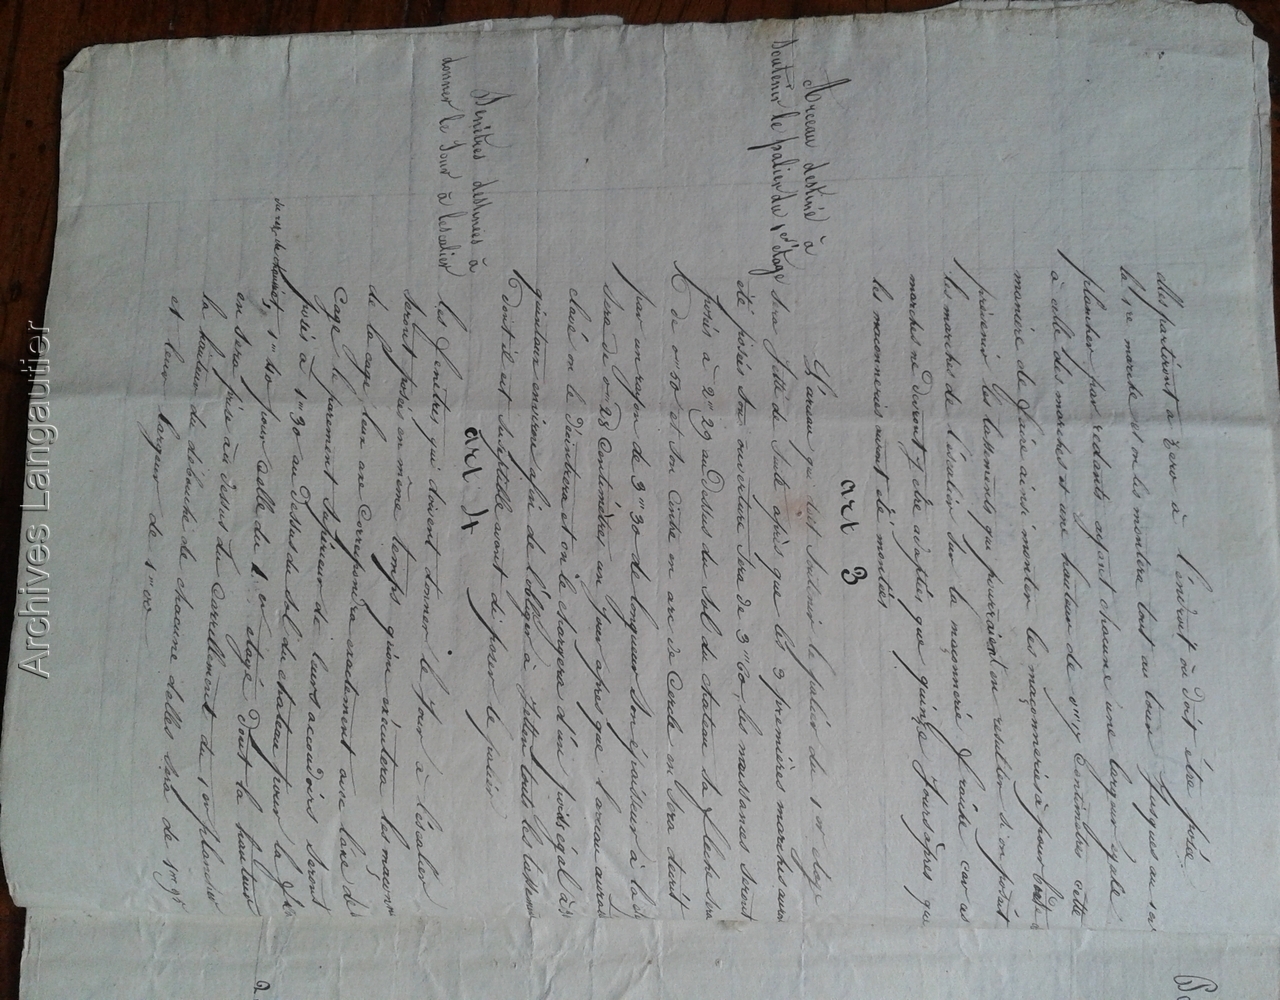 des partiront à zero à l'endroit où doit être posée
la 1re marche et on les montera tout au tour jusques au 1er
plancher par redants ayant chacune une largeur égale
à celle des marches et une hauteur de 0m17 Centimètres cette
manière de faire ainsi monter les maçonneries à pour but de
prévenir les tassements qui pourraient en resulter si on posait
les marches de l'escalier sur la maçonnerie fraiche car
marches ne devront y être adaptées que quinze jours après que
les maconneries auront été montées
art 3
Arceau destiné à
soutenir le palier du 1er étage
L'arceau qui doit soutenir le palier du 1er étage
sera jetté de suite après que les 3 premières marches auront
été posées son ouverture sera de 3m60, les naissances seront
posées à 2m29 au dessus du sol du chateau sa fleche sera
de 0m50 et son Cintre en arc de Cercle en sera decrit
par un rayon de 3m30 de longueur son épaisseur à la clé
sera de 0m28 Centimètres un jour après que l'arceau aura été
clavé on le Decintrera et on le chargera d'un poids égal à
quintaux environ afin de l'obliger à faire touts les tassements
dont il est susceptible avant de poser le palier
art 4
Fenêtres destinées à
donner le Jour à l'escalier
les fenêtres qui doivent donner le jour à l'escalier
seront posées en même temps qu'on exécutera les maconneries
de la cage, leur axe Correspondra exactement avec l'axe de
Cage le parement supérieur de leurs accoudoirs seront
posés à 1m30 au dessus du sol du chateau pour la fenêtre
du rez de chaussée, 1m40 pour celle du 1er etage dont la hauteur
en sera prise au dessus du Carrellement du 1er plancher
la hauteur du débouché de chacune d'elles sera de 1m95
et leur largeur de 1m00
Archives Langautier